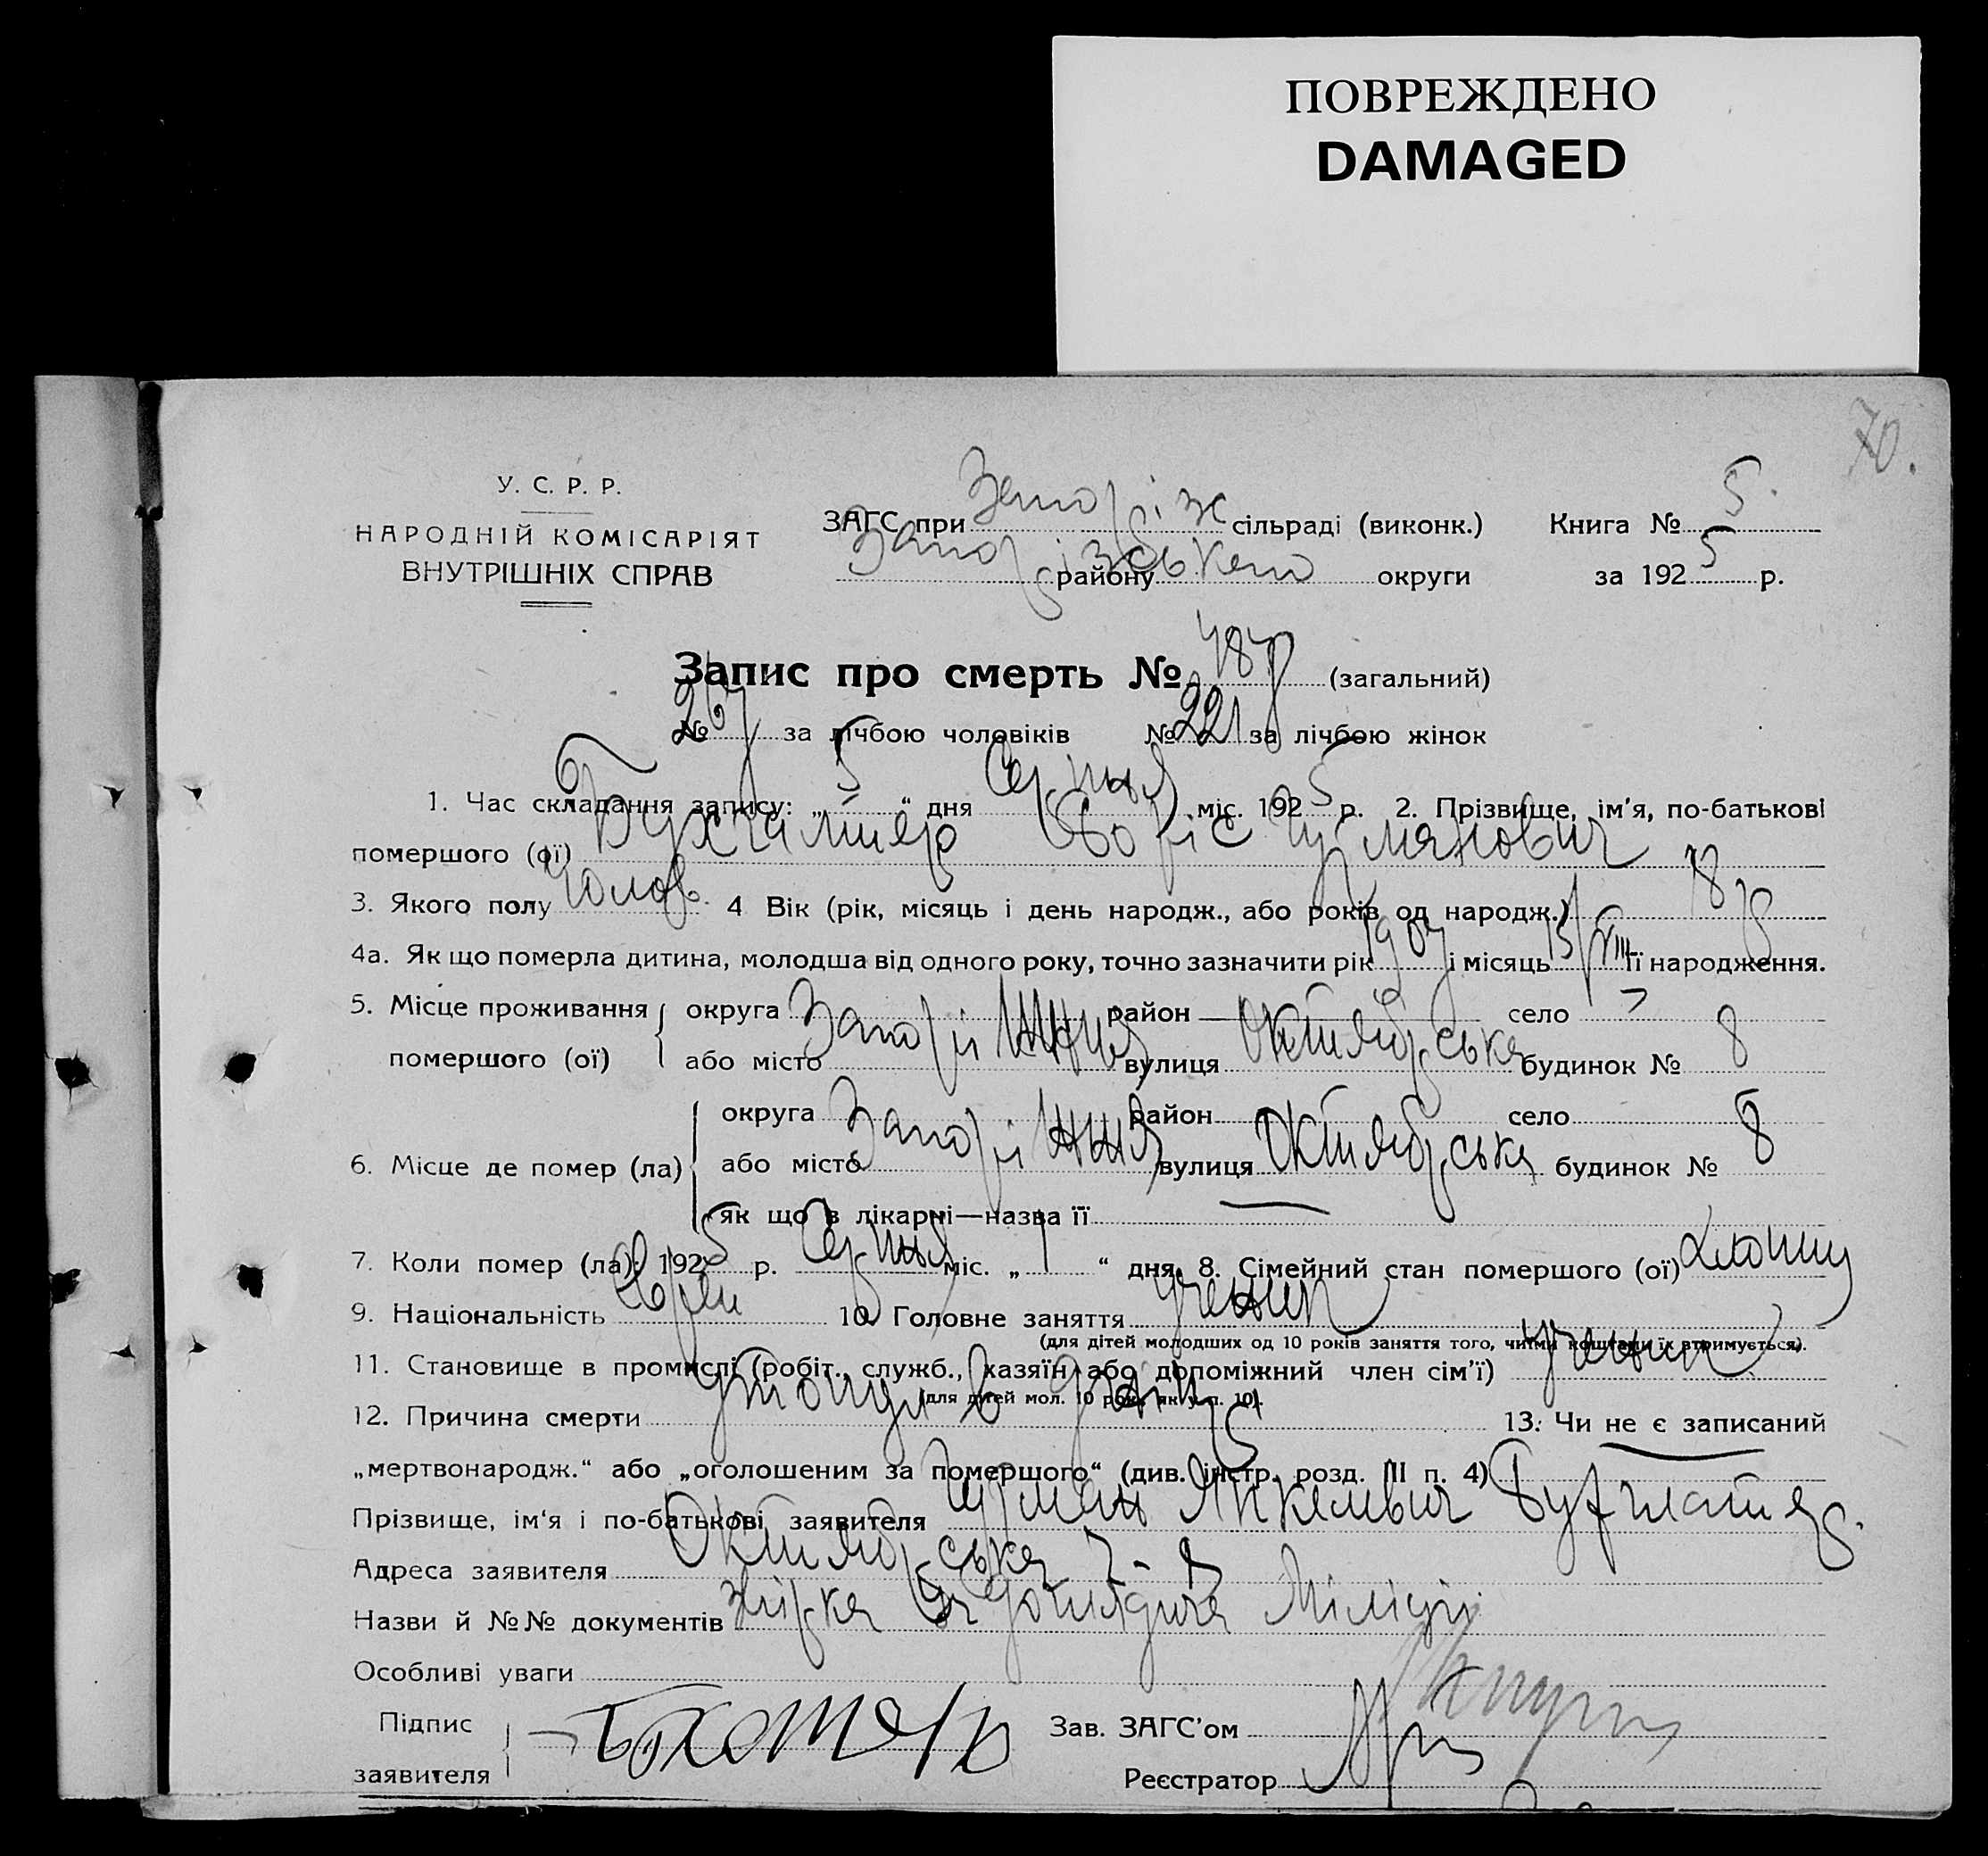 ПОВРЕЖДЕНО
DAMAGED
70.
У. С. Р. Р.
НАРОДНІЙ КОМІСАРІЯТ
ВНУТРІШНІХ СПРАВ
ЗАГС при Запоріж сільраді (виконк.) Книга № 5
Запорізького району округи за 1925 р.
Запис про смерть № 487 (загальний)
№ 267 за лічбою чоловіків № 221 за лічбою жінок
1. Час складання запису: „5“ дня Серпня міс. 1925 р. 2. Прізвище, ім’я, по-батькові
помершого (ої) Бухгалтер Боріс Гурманович
3. Якого полу Чолов. 4 Вік (рік, місяць і день народж., або років од народж.) 18 р
4а. Як що померла дитина, молодша від одного року, точно зазначити рік 1907 і місяць 15/VIII її народження.
5. Місце проживання округа Запоріжжя район село
помершого (ої) або місто вулиця Октябрська будинок № 8
округа Запоріжжя район село
6. Місце де помер (ла) або місто вулиця Октябрська будинок № 8
як що в лікарні—назва її
7. Коли помер (ла): 1925 р. Серпня міс. „1“ дня. 8. Сімейний стан помершого (ої)
9. Національність Єврей 10. Головне заняття ученик
(для дітей молодших од 10 років заняття того, чиїми коштами їх втримується).
11. Становище в промислі (робіт., служб., хазяїн або допоміжний член сім’ї) ученик
(для дітей мол. 10 рок. як у п. 10).
12. Причина смерти в 13. Чи не є записаний
„мертвонародж.“ або „оголошеним за помершого“ (див. інстр. розд. III п. 4)
Прізвище, ім‘я і по-батькові заявителя Гурман Янкелевич Бухгалтер
Адреса заявителя Октябрська
Назви й №№ документів Міліції
Особливі уваги
Підпис
заявителя
Зав. ЗАГС’ом
Реєстратор